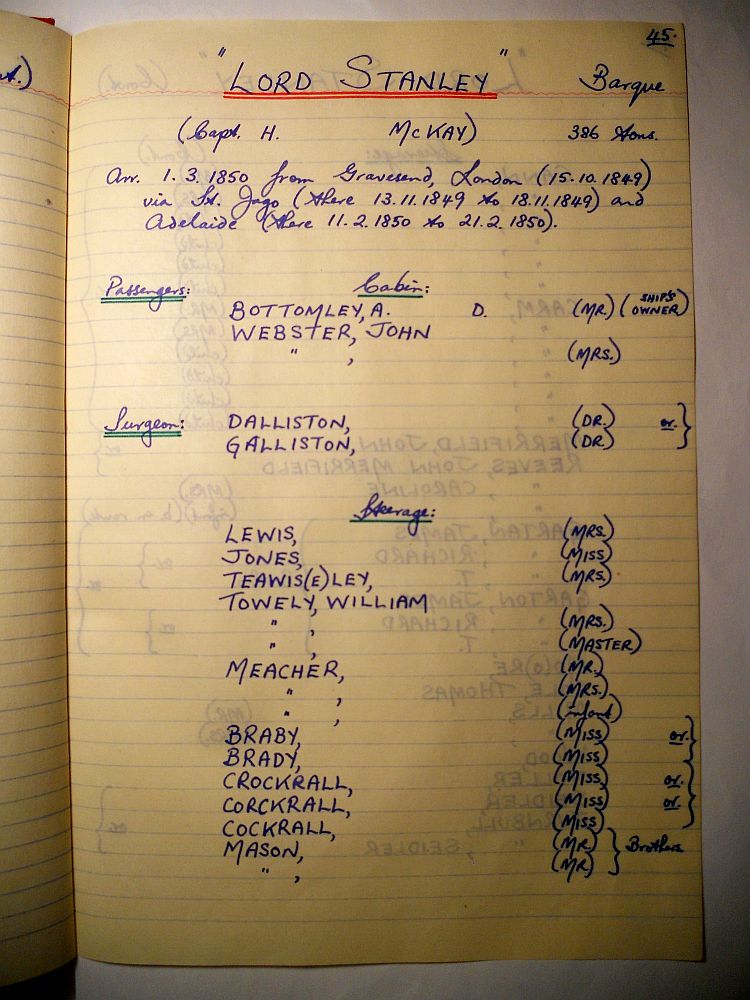 t.)
45.
"LORD STANLEY" Barque
(Capt. H. McKAY) 386 tons.
Arr. 1.3.1850 from Gravesend, London (15.10.1849)
via St. Jago (there 13.11.1849 to 18.11.1849) and
Adelaide (there 11.2.1850 to 21.2.1850).
Passengers: Cabin:
BOTTOMLEY, A. D. (MR.) (SHIP'S OWNER)
WEBSTER, JOHN
" , (MRS.)
Surgeon: DALLISTON, (DR.) or.
GALLISTON, (DR.)
Steerage:
LEWIS, (MRS.)
JONES, (MISS)
TEAWIS(E)LEY, (MRS.)
TOWELY, WILLIAM
" , (MRS.)
" , (MASTER)
MEACHER, (MR.)
" , (MRS.)
" , (infant)
BRABY, (MISS) or.
BRADY, (MISS)
CROCKRALL, (MISS) or.
CORCKRALL, (MISS) or.
COCKRALL, (MISS)
MASON, (MR.) Brothers
" , (MR.)